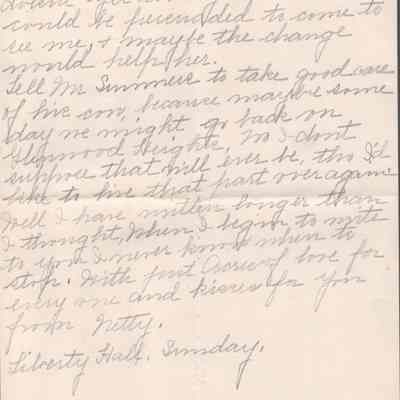 could be persuaded to come to
see me, & maybe the change
would help her.
Tell Mr Summers to take good care
of his cow, because maybe some
day we might go back on
Glenwood Heights. No I dont
suppose that will ever be, tho I'd
like to live that part over again.
Well I have written longer than
I thought, When I begin to write
to you I never know when to
stop. With just of love for
every one and kisses for you
from Netty.
Liberty Hall. Sunday.